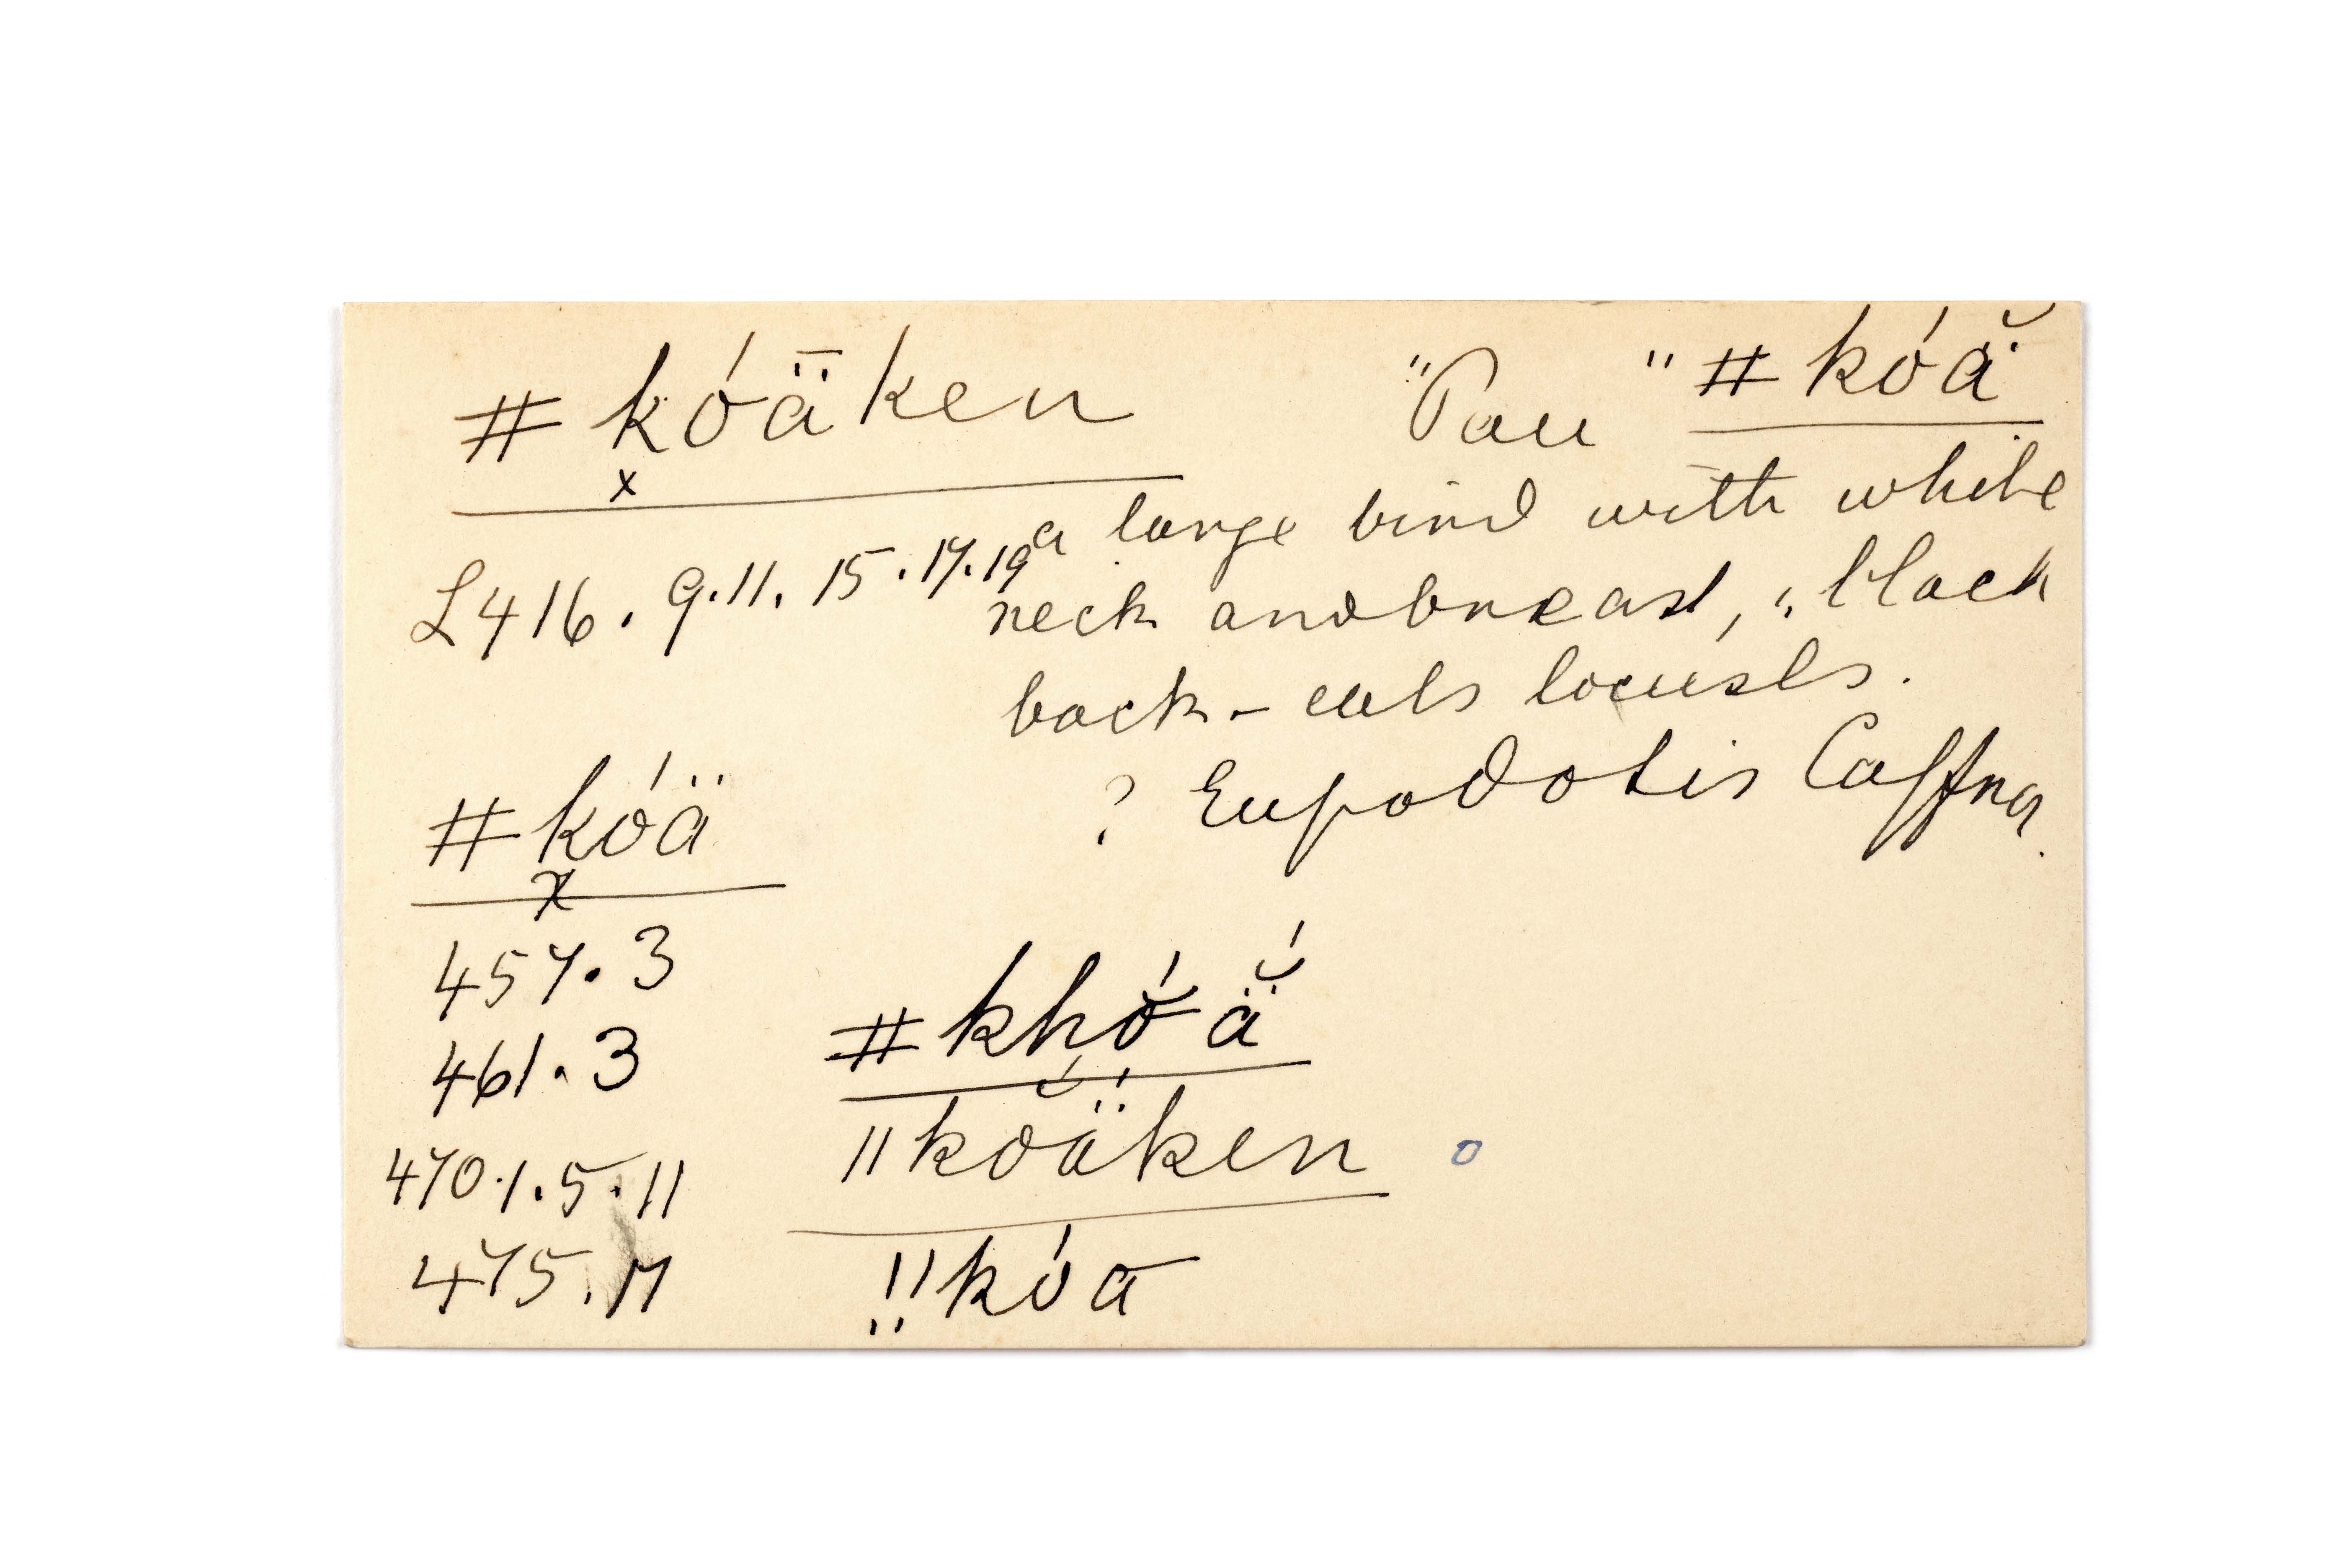 # kóǟken
x
"Pau" # kóä̆
L416. 9.11. 15.17.19
a large bird with white
neck and breast, black
back - eats locusts.
? Eupodotis Caffra.
# kóä
x
457.3
461.3
470.1.5.11
475.17
# khóä̆́
ǁkŏä́ken
o
!!kóā